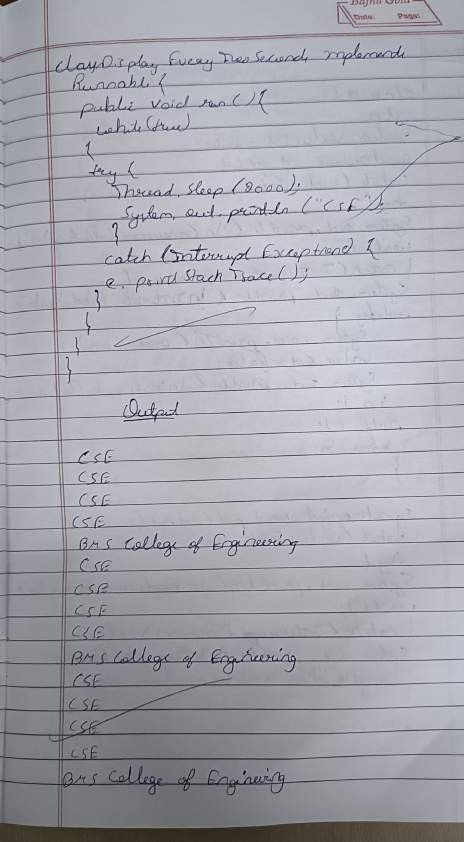 Bajna Gold
Date: Page:
Class Display Every Two Seconds implements
Runnable {
public void run() {
while (true)
{
try {
Thread. sleep (2000);
System. out. println ("CSE");
}
catch (Interrupt Exception e) {
e. print Stack Trace();
}
}
}
}
Output
CSE
CSE
CSE
CSE
BMS College of Engineering
CSE
CSE
CSE
CSE
BMS College of Engineering
CSE
CSE
CSE
CSE
BMS College of Engineering